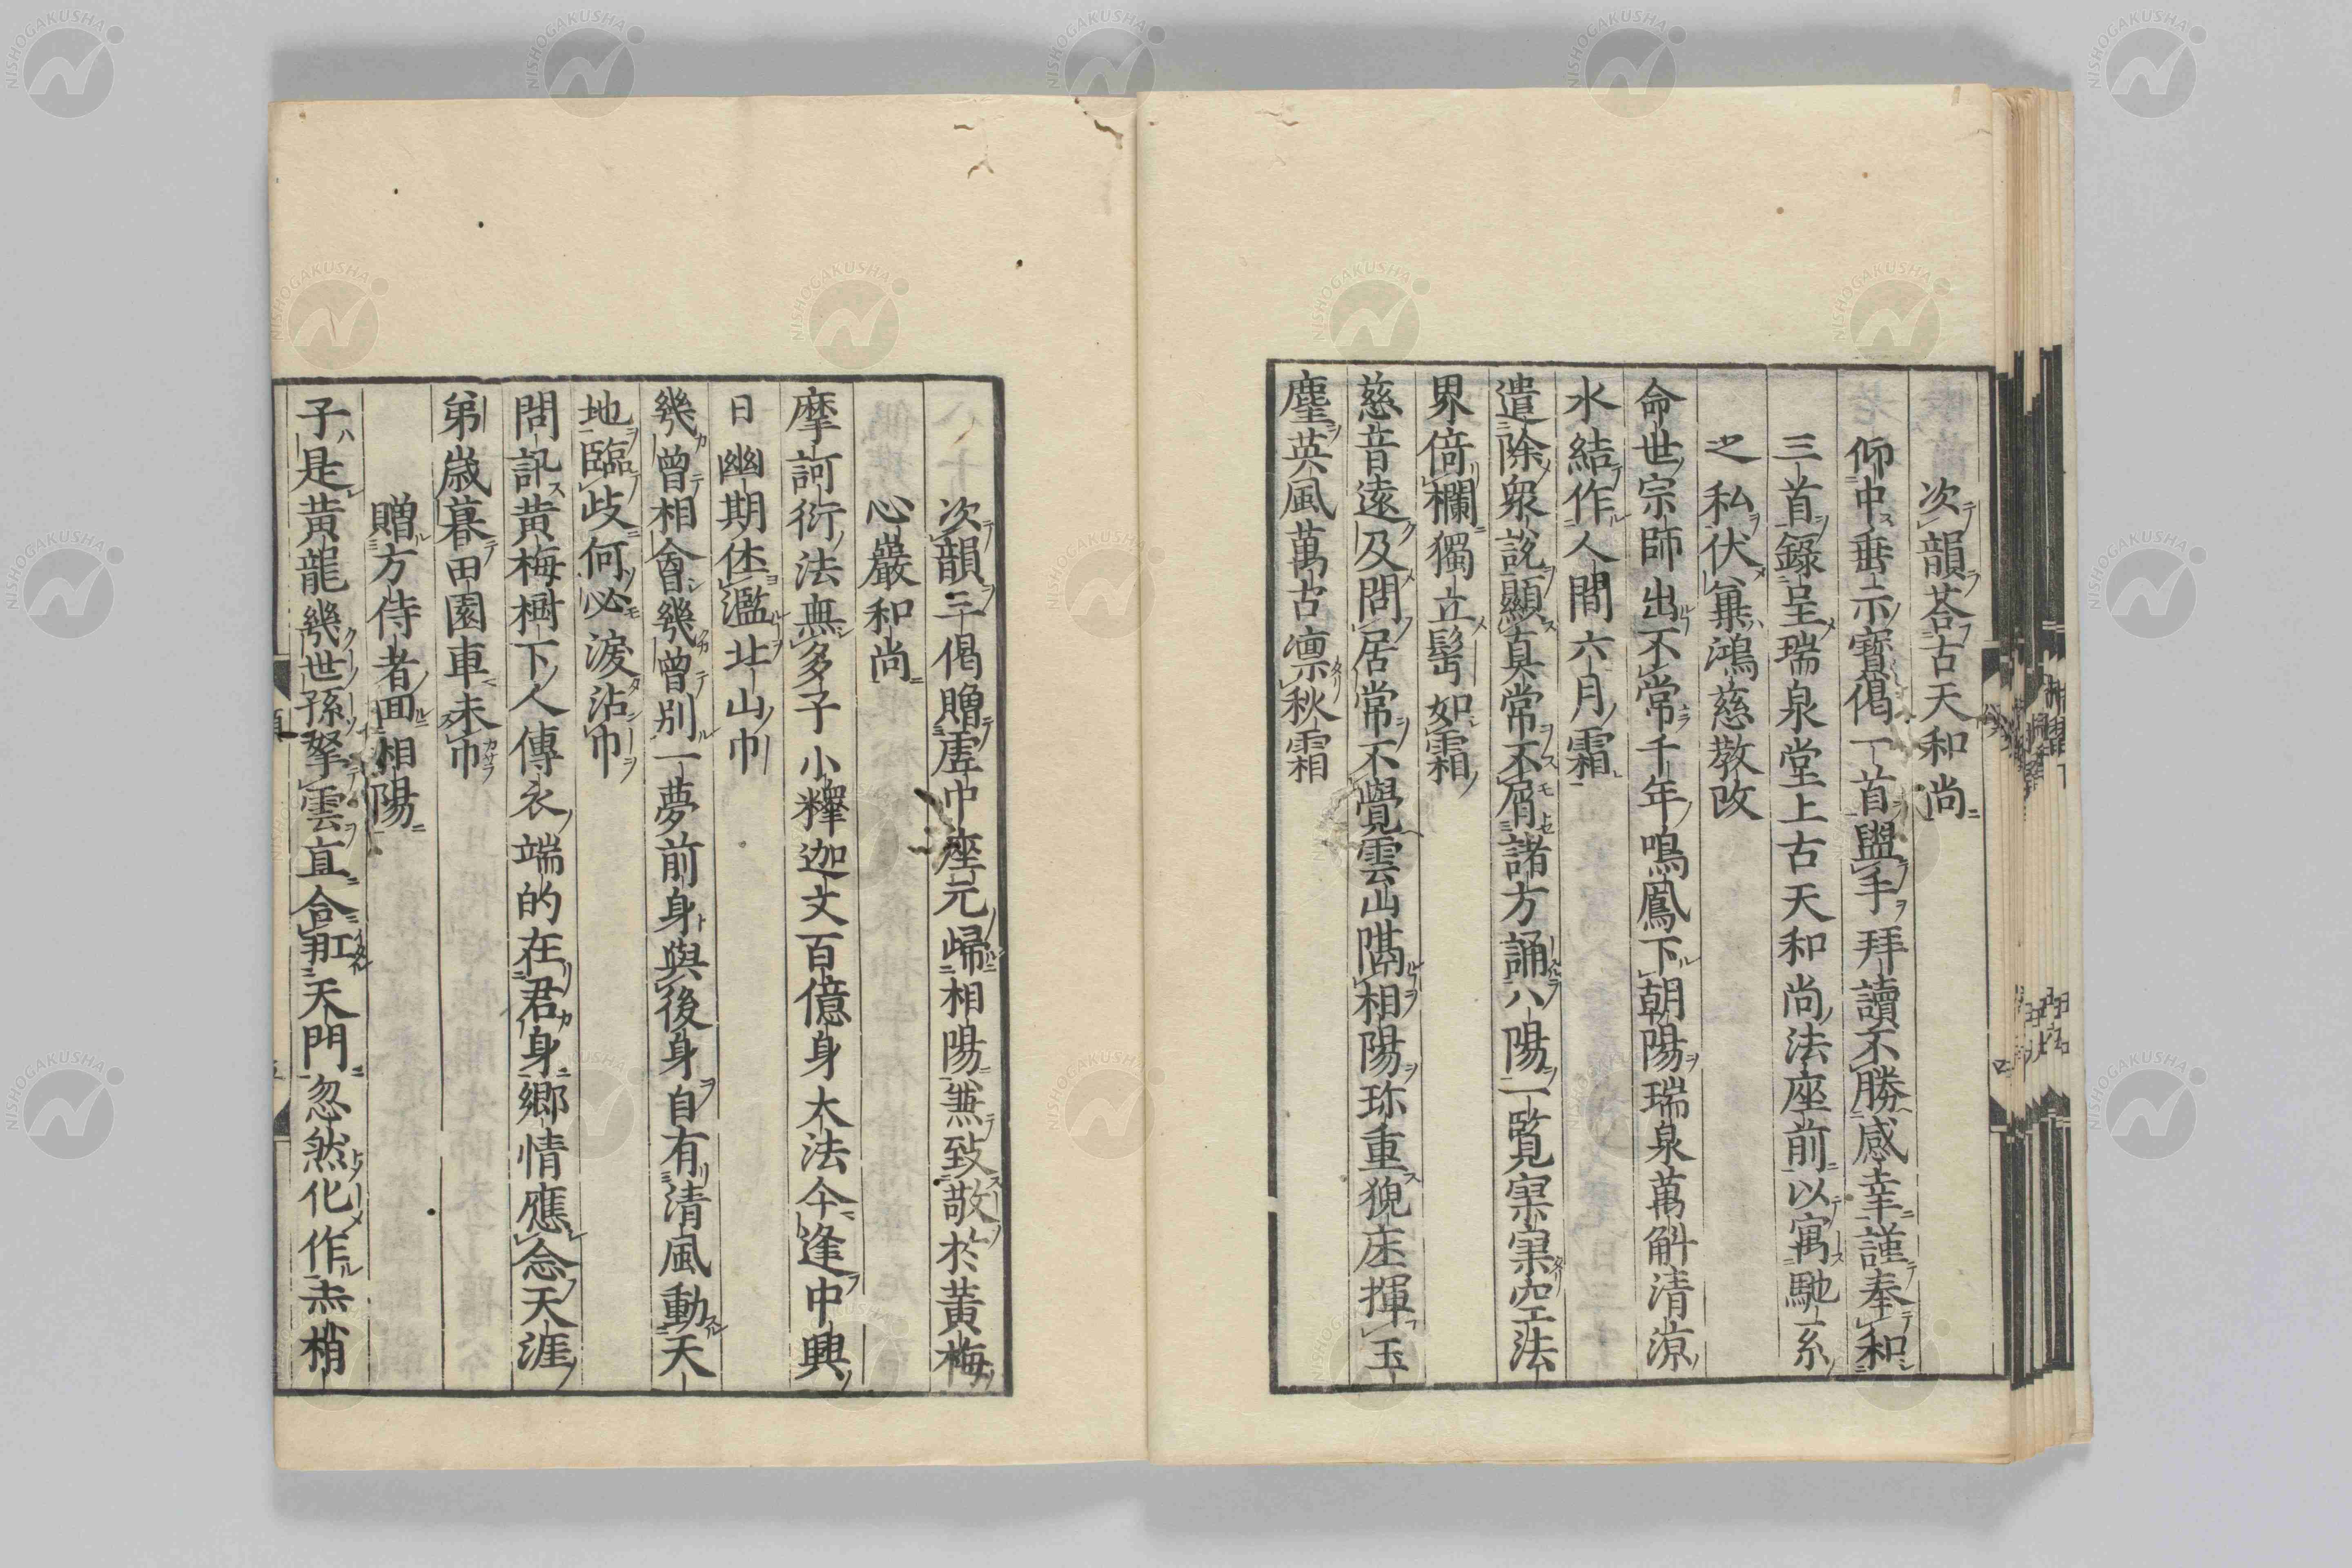 次韻荅古天和尚
仰中垂示寶偈一首盥手拜讀不勝感幸謹奉和
三首錄呈瑞泉堂上古天和尚法座前以寓馳系
之私伏兾鴻慈教改
命世宗師出不常千年鳴鳳下朝陽瑞泉萬斛清凉
水結作人間六月霜
遣除衆說顯真常不屑諸方誦八陽一覽寥寥空法
界倚欄獨立髩如霜
慈音遠及問居常不覺雲山隔相陽珎重猊座揮玉
塵英風萬古凛秋霜
次韻三偈贈虗中座元歸相陽兼致敬於黃梅
心巖和尚
摩訶衍法無多子小釋迦文百億身大法今逢中興
日幽期休濫北山巾
幾曾相會幾曾別一夢前身與後身自有清風動天
地臨歧何必淚沾巾
問訊黃梅樹下人傳衣端的在君身鄉情應念天涯
弟歲暮田園車未巾
贈方侍者回相陽
子是黃龍幾世孫拏雲直合肛天門忽然化作焘梢
NISHOGAKUSHA